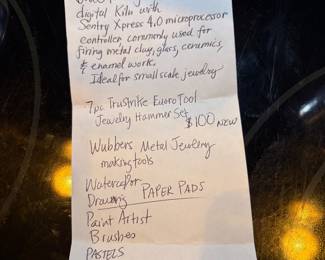 digital Kiln with
Sentry Xpress 4.0 microprocessor
controller, commonly used for
firing metal clay, glass, ceramics,
& enamel work.
Ideal for small scale jewelry
7pc Trustrike Euro Tool
Jewelry Hammer Set
$100 NEW
Wubbers Metal Jewelry
making tools
Watercolor
Drawing PAPER PADS
Paint Artist
Brushes
PASTELS